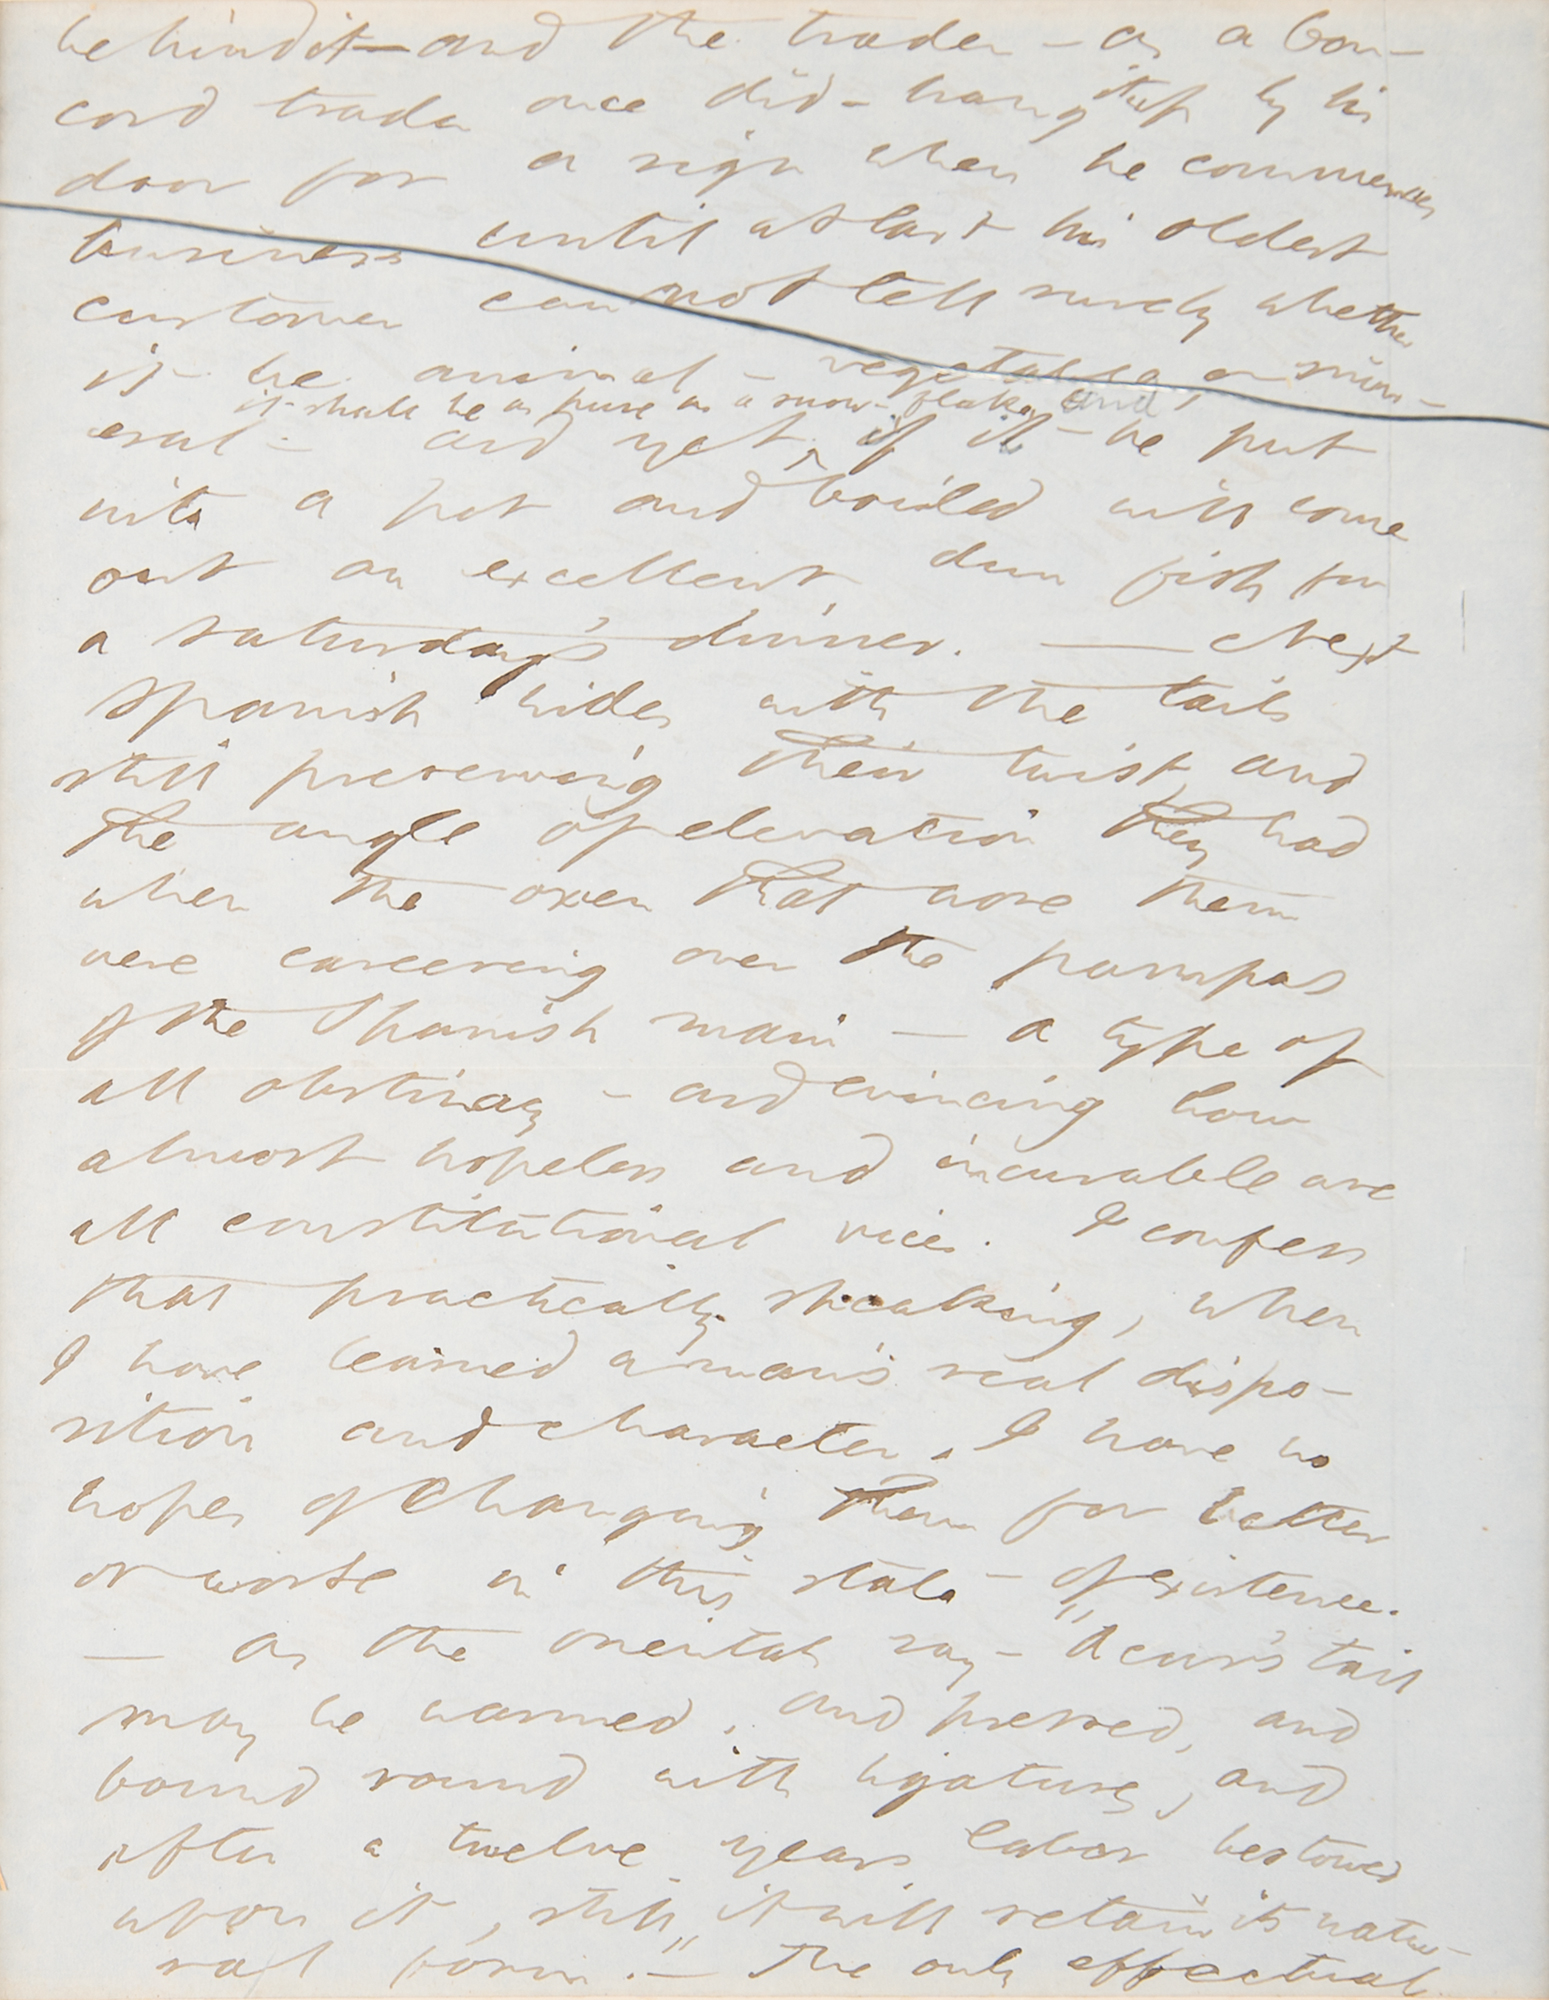 behind it—and the trader—as a Con-
cord trader once did—hang it up by his
door for a sign when he commences
business until at last his oldest
customer cannot tell surely whether
it be animal—vegetable or min-
it shall be as pure as a snow-flake, and
eral—and yet if it be put
into a pot and boiled will come
out an excellent dun fish for
a saturday's dinner. — Next
Spanish hides with the tails
still preserving their twist, and
the angle of elevation they had
when the oxen that wore them
were careering over the pampas
of the Spanish main — a type of
all obstinacy—and evincing how
almost hopeless and incurable are
all constitutional vices. I confess
that practically speaking, when
I have learned a man's real dispo-
sition and character, I have no
hopes of changing them for better
or worse in this state of existence.
— As the orientals say—"A cur's tail
may be warmed, and pressed, and
bound round with ligatures, and
after a twelve years labor bestowed
upon it, still it will retain its natu-
ral form."— The only effectual